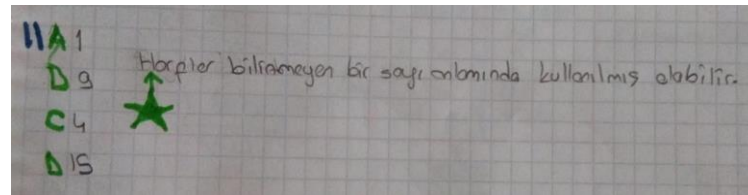 11 A 1
D 9 Harfler bilinmeyen bir sayı anlamında kullanılmış olabilir.
C 4
D 15